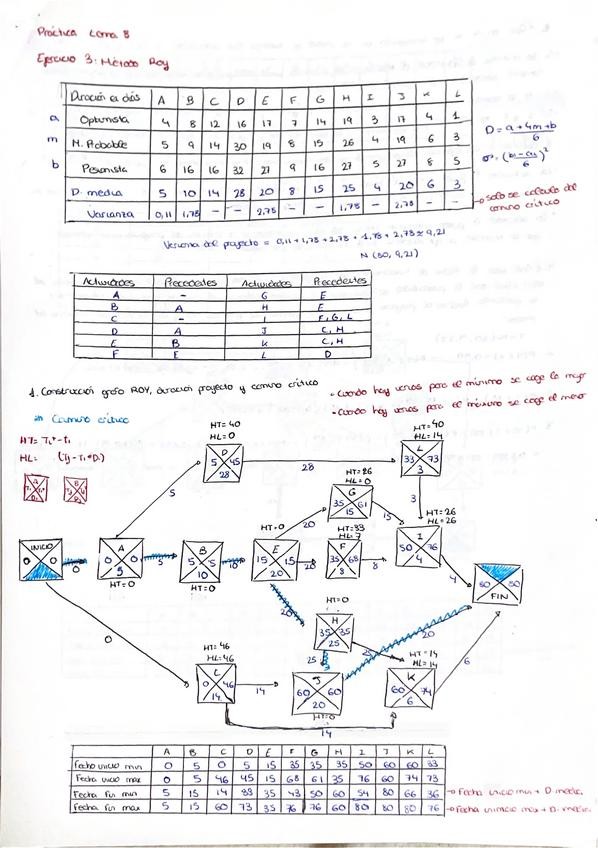 Práctica tema 8
Ejercicio 3: Método Roy
Duración en días A B C D E F G H I J K L
a Optimista 4 8 12 16 17 7 14 19 3 17 4 1
m M. Probable 5 9 14 30 19 8 15 26 4 19 6 3
b Pesimista 6 16 16 32 27 9 16 27 5 27 8 5
D. media 5 10 14 28 20 8 15 25 4 20 6 3
Varianza 0,11 1,78 - - 2,78 - - 1,78 - 2,78 - -
D = a + 4m + b / 6
σ² = (b - a / 6)²
→ solo se calcula del camino crítico
Varianza del proyecto = 0,11 + 1,78 + 2,78 + 1,78 + 2,78 ≈ 9,21
N (80, 9,21)
Actividades Precedentes Actividades Precedentes
A - G E
B A H E
C - I F, G, L
D A J C, H
E B K C, H
F E L D
1. Construcción grafo ROY, duración proyecto y camino crítico
- Cuando hay varios para el mínimo se coge el mayor
- Cuando hay varios para el máximo se coge el menor
Camino crítico
HT = Ti* - ti
HL =
A
B
HT = 40
HL = 0
D
5 45
28
28
HT = 40
HL = 14
L
33 73
3
3
5
HT = 26
HL = 0
G
35 61
15
20
15
HT = 26
HL = 26
I
50 76
4
4
INICIO
0 0
0
A
0 0
5
HT = 0
5
B
5 5
10
HT = 0
10
HT = 0
E
15 15
20
20
HT = 33
HL = 7
F
35 68
8
8
80 80
FIN
20
HT = 0
H
35 35
25
25
20
0
HT = 46
HL = 46
C
0 46
14
14
J
60 60
20
HT = 0
HT = 14
HL = 14
K
60 74
6
6
14
A B C D E F G H I J K L
Fecha inicio min 0 5 0 5 15 35 35 35 50 60 60 33
Fecha inicio max 0 5 46 45 15 68 61 35 76 60 74 73
Fecha fin min 5 15 14 33 35 43 50 60 54 80 66 36 → Fecha inicio min + D. media
Fecha fin max 5 15 60 73 35 76 76 60 80 80 80 76 → Fecha inicio max + D. media